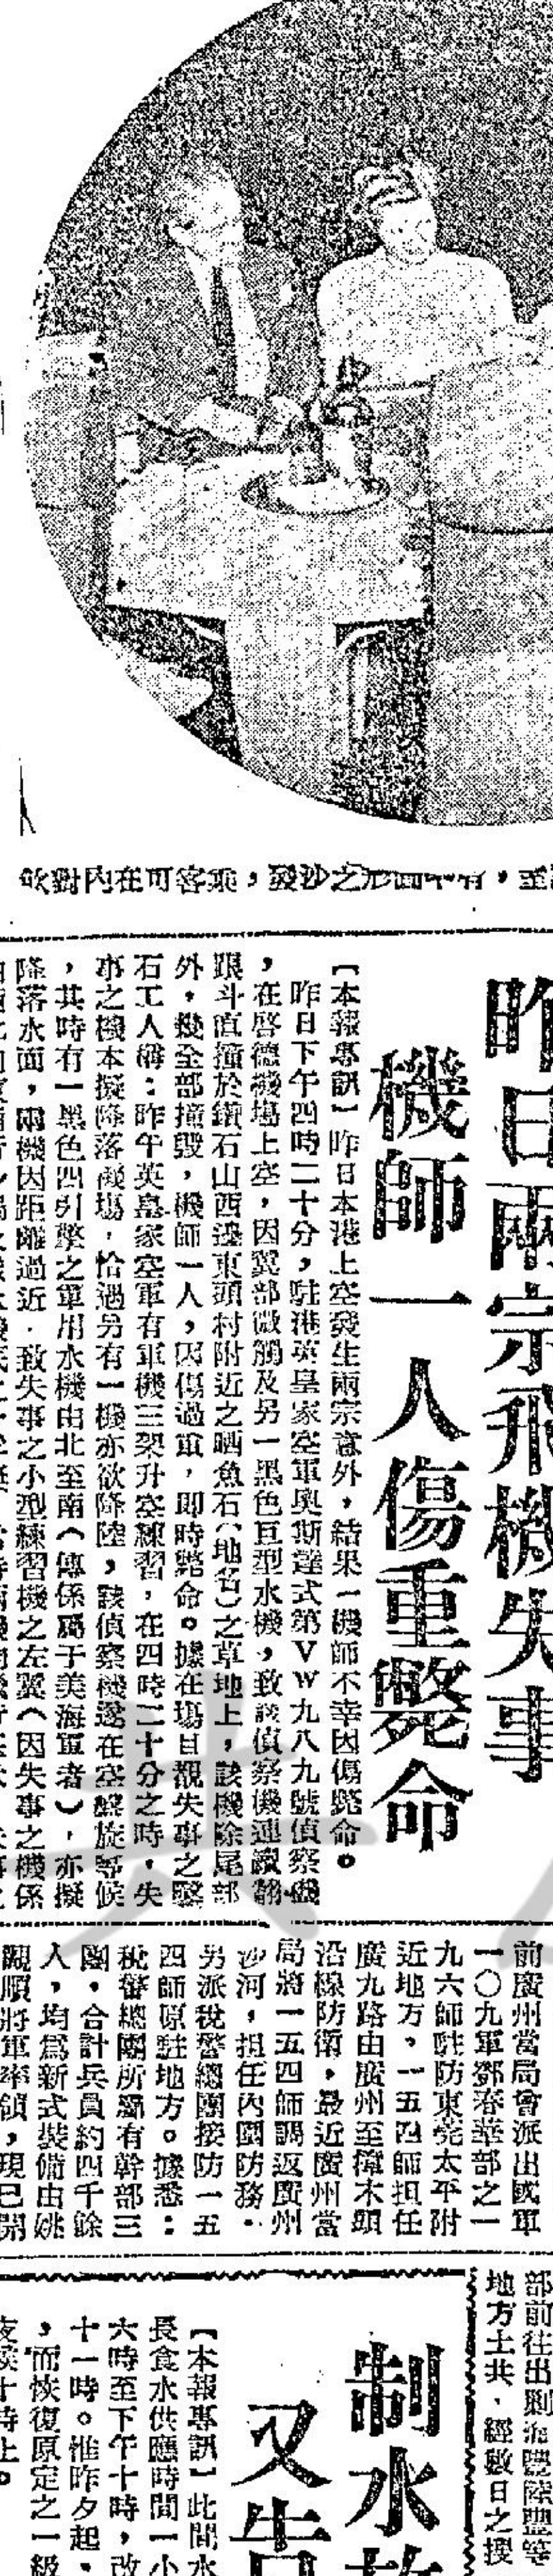 昨日兩宗飛機失事
機師一人傷重斃命
【本報專訊】昨日本港上空發生兩宗意外，結果一機師不幸因傷斃命。
昨日下午四時二十分，駐港英皇家空軍奧斯達式第VW九八九號偵察機
，在啓德機場上空，因翼部微觸及另一黑色巨型水機，致該偵察機連續翻
跟斗直撞於鑽石山西邊東頭村附近之晒魚石（地名）之草地上，該機除尾部
外，幾全部撞毀，機師一人，因傷過重，即時斃命。據在場目覩失事之鑿
石工人稱：昨午英皇家空軍有軍機三架升空練習，在四時二十分之時，失
事之機本擬降落機場，恰遇另有一機亦欲降陸，該偵察機遂在空盤旋等候
，其時有一黑色四引擎之軍用水機由北至南（傳係屬于美海軍者），亦擬
降落水面，兩機因距離過近，致失事之小型練習機之左翼（因失事之機係
前廣州當局曾派出國軍
一〇九軍鄧春華部之一
九六師駐防東莞太平附
近地方，一五四師担任
廣九路由廣州至樟木頭
沿線防衛，最近廣州當
局將一五四師調返廣州
沙河，担任內圍防務，
另派稅警總團接防一五
四師原駐地方。據悉：
稅警總團所屬有幹部三
團，合計兵員約四千餘
人，均爲新式裝備由姚
觀順將軍率領，現已開
部前往出剿海豐陸豐等
地方土共，經數日之搜
制水
又告
【本報專訊】此間水
長食水供應時間一小
六時至下午十時，改
十一時。惟昨夕起，
，而恢復原定之一級
夜候十時止。